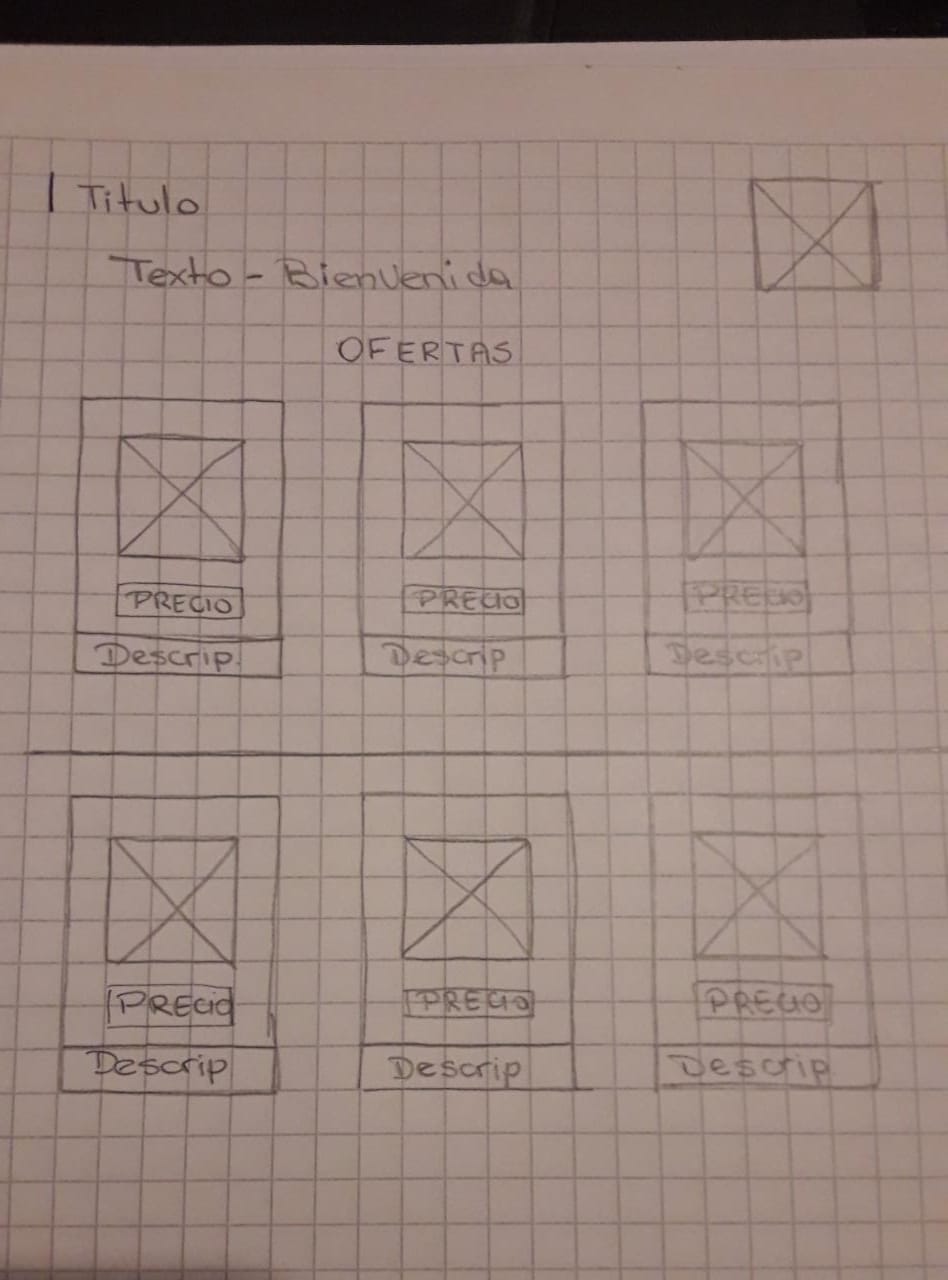 Titulo
Texto - Bienvenida
OFERTAS
PRECIO PRECIO PRECIO
Descrip. Descrip Descrip
PRECIO PRECIO PRECIO
Descrip Descrip Descrip